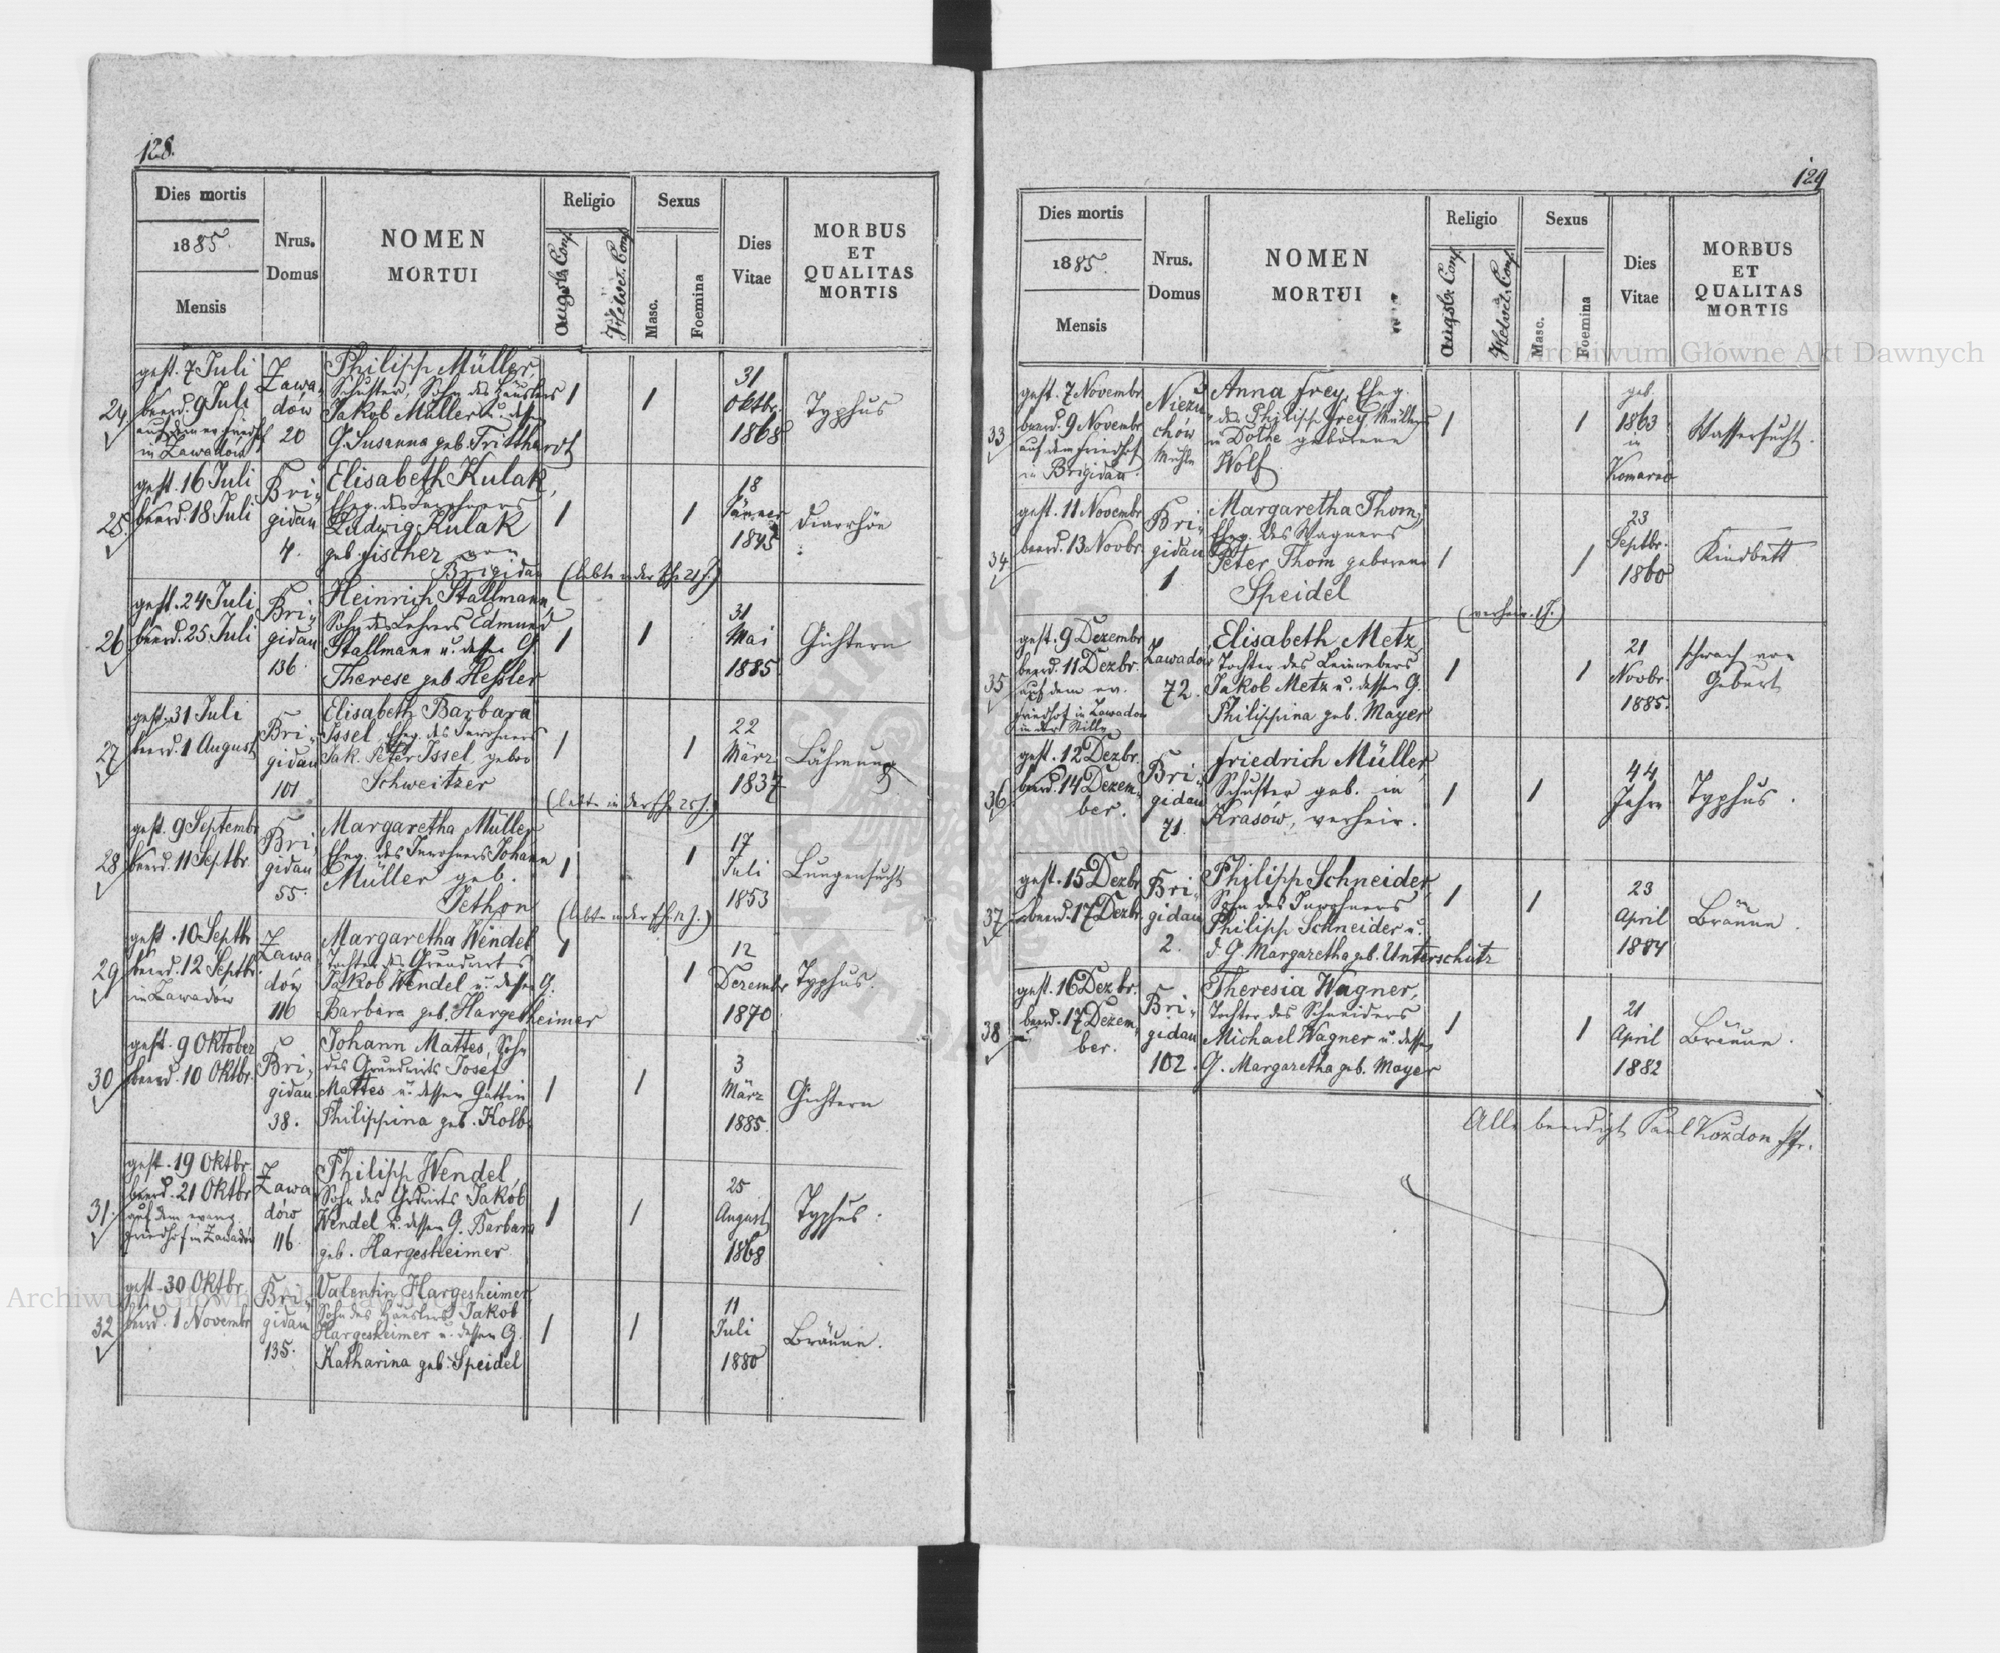 128.
Dies mortis
1885.
Mensis
Nrus.
Domus
NOMEN
MORTUI
Religio
Augsb. Conf.
Helvet. Conf.
Sexus
Masc.
Foemina
Dies
Vitae
MORBUS
ET
QUALITAS
MORTIS
24
gest. 7 Juli
beerd. 9 Juli
auf dem ev. Friedhof
in Zawadów
Zawa-
dów
20
Philipp Müller
Schuster, Sohn des Häuslers
Jakob Müller u. dessen
G. Susanna geb. Tritthardt
1
1
31
Oktbr.
1868
Typhus
25.
gest. 16 Juli
beerd. 18 Juli
Bri-
gidau
4.
Elisabeth Kulak,
Eheg. des Inwohners
Ludwig Kulak
geb. Fischer von
Brigidau
(lebte in der Ehe 21 J.)
1
1
18
Jänner
1845
Diarrhöe
26
gest. 24 Juli
beerd. 25 Juli
Bri-
gidau
136.
Heinrich Stallmann,
Sohn des Lehrers Edmund
Stallmann u. dessen G.
Therese geb. Hessler
1
1
31
Mai
1885
Gichtern
27
gest. 31 Juli
beerd. 1 August
Bri-
gidau
101
Elisabeth Barbara
Issel, Eheg. des Inwohners
Jak. Peter Issel, gebor.
Schweitzer
(lebte in der Ehe 25 J.)
1
1
22
März
1837
Lähmung
28
gest. 9 Septembr
beerd. 11 Septbr.
Bri-
gidau
55.
Margaretha Müller
Eheg. des Inwohners Johann
Müller geb.
Jethon
(lebte in der Ehe 12 J.)
1
1
17
Juli
1853
Lungensucht
29
gest. 10 Septbr
beerd. 12 Septbr.
in Zawadów
Zawa
dów
116
Margaretha Wendel
Tochter des Grundwirts
Jakob Wendel u. dessen G.
Barbara geb. Hargesheimer
1
1
12
Dezembr
1870
Typhus.
30
gest. 9 Oktober
beerd. 10 Oktbr.
Bri-
gidau
38.
Johann Mattes, Sohn
des Grundwirts Josef
Mattes u. dessen Gattin
Philippina geb. Kolb.
1
1
3
März
1885.
Gichtern
31.
gest. 19 Oktbr.
beerd. 21 Oktbr
auf dem evang.
Friedhof in Zawadów
Zawa
dów
116
Philipp Wendel,
Sohn des Grdwirts Jakob
Wendel u. dessen G. Barbara
geb. Hargesheimer
1
1
25
August
1868
Typhus.
32
gest. 30 Oktbr.
beerd. 1 Novembr
Bri-
gidau
135.
Valentin Hargesheimer
Sohn des Häuslers Jakob
Hargesheimer u. dessen G.
Katharina geb. Speidel
1
1
11
Juli
1880
Bräune.
129
Dies mortis
1885.
Mensis
Nrus.
Domus
NOMEN
MORTUI
Religio
Augsb. Conf.
Helvet. Conf.
Sexus
Masc.
Foemina
Dies
Vitae
MORBUS
ET
QUALITAS
MORTIS
33
gest. 7 Novembr
beerd. 9 Novembr
auf dem Friedhof
in Brigidau.
Niezu-
chów
Mühle
Anna Frey, Eheg.
des Philipp Frey, Müllers
in Dołhe geborene
Wolf
1
1
geb.
1863
in
Komarno
Wassersucht.
34
gest. 11 Novembr
beerd. 13 Novbr.
Bri-
gidau
1
Margaretha Thom,
Eheg. des Wagners
Peter Thom geborene
Speidel
(verheir. J.)
1
1
23
Septbr.
1860
Kindbett
35
gest. 9 Dezembr
beerd. 11 Dezbr.
auf dem ev.
Friedhof in Zawadów
in der Stille
Zawadów
72.
Elisabeth Metz,
Tochter des Leinwebers
Jakob Metz u. dessen G.
Philippina geb. Mayer
1
1
21
Novbr.
1885.
schwach von
Geburt
36
gest. 12 Dezbr.
beerd. 14 Dezem-
ber.
Bri-
gidau
71.
Friedrich Müller,
Schuster geb. in
Krasów, verheir.
1
1
44
Jahre
Typhus.
37
gest. 15 Dezbr
beerd. 17 Dezbr.
Bri-
gidau
2.
Philipp Schneider,
Sohn des Inwohners
Philipp Schneider u.
d. G. Margaretha geb. Unterschütz
1
1
23
April
1884
Bräune.
38
gest. 16 Dezbr.
beerd. 17 Dezem-
ber.
Bri-
gidau
102.
Theresia Wagner,
Tochter des Schneiders
Michael Wagner u. dessen
G. Margaretha geb. Mayer
1
1
21
April
1882
Bräune.
Alle beerdigt Paul Kozdon Pfr.
Archiwum Główne Akt Dawnych
Archiwum Główne Akt Dawnych